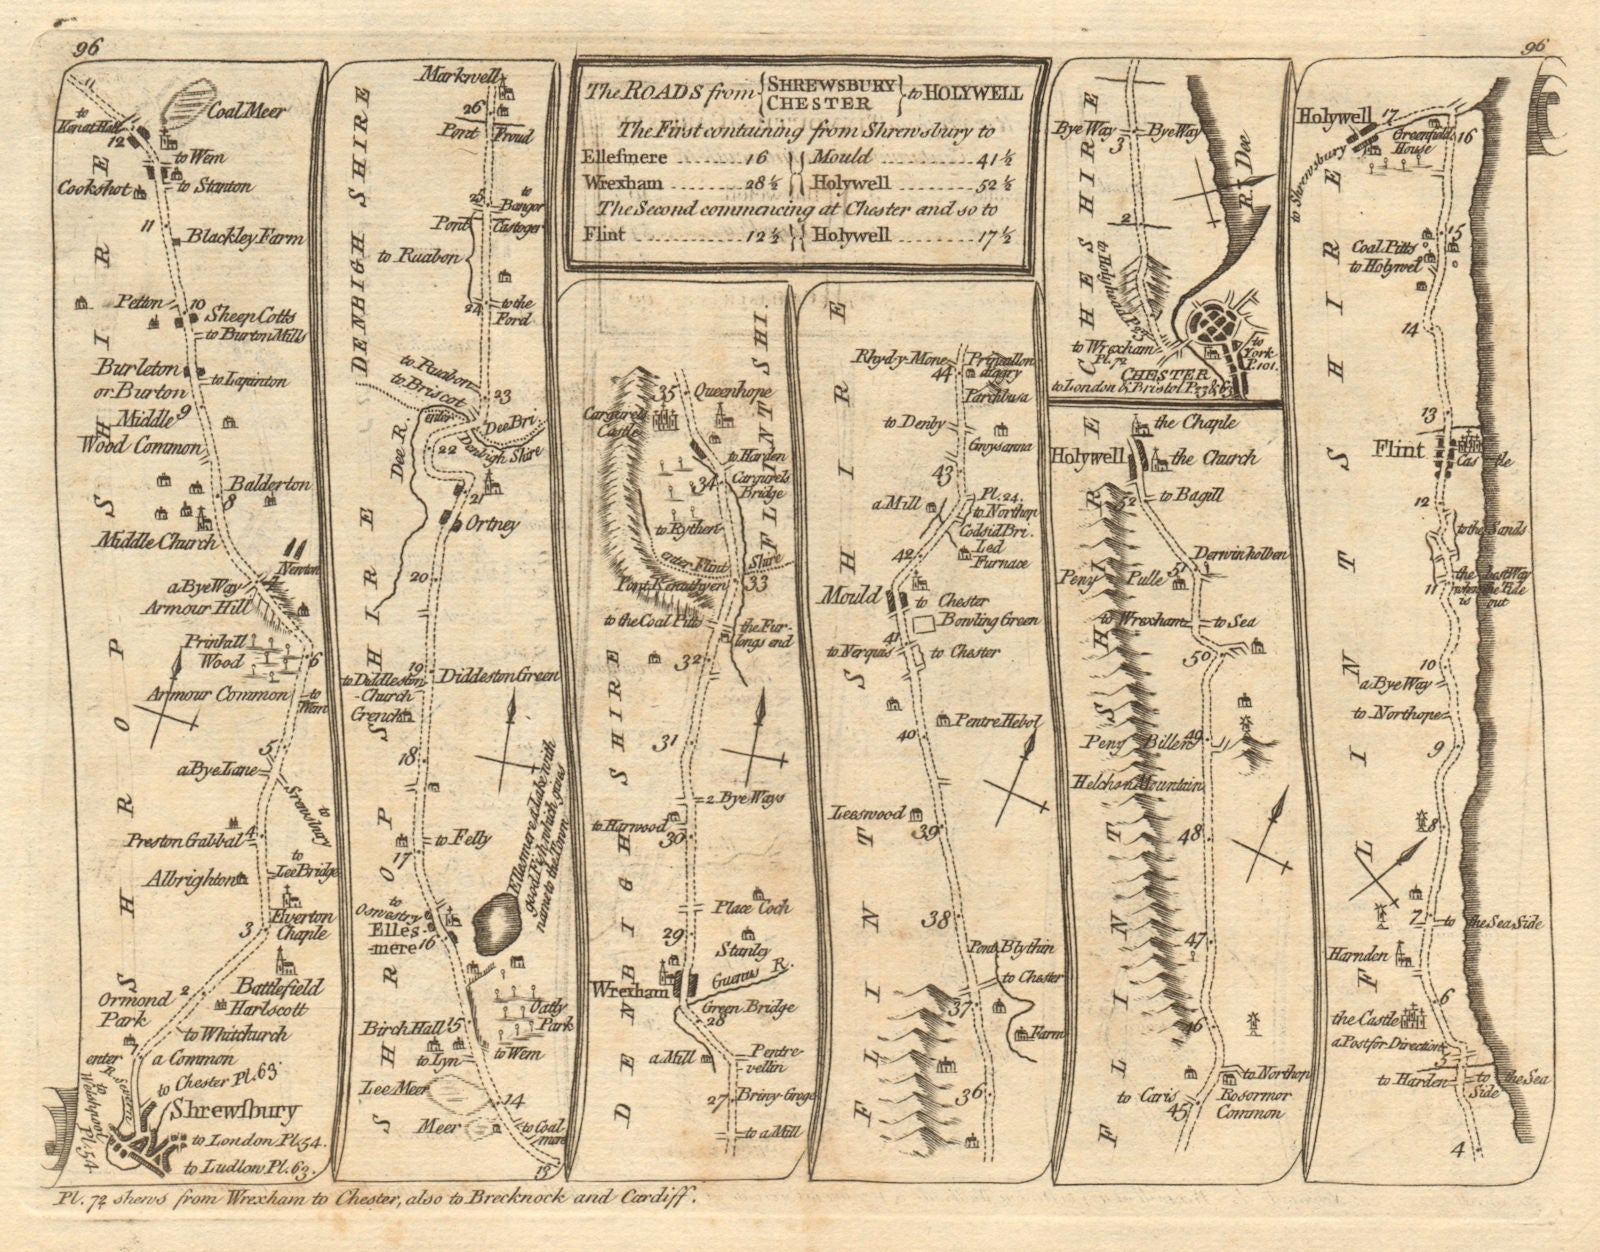 96
96
The ROADS from { SHREWSBURY CHESTER } to HOLYWELL
The First containing from Shrewsbury to
Ellesmere ........ 16 Mould ........ 41½
Wrexham ........ 28½ Holywell ........ 52½
The Second commencing at Chester and so to
Flint ........ 12½ Holywell ........ 17½
SHROPSHIRE
Coal Meer
to
Kenat Hall
12
to Wem
Cookshot
to Stanton
11
Blackley Farm
Petton
10
Sheep Cotts
to Burton Mills
Burleton
or Burton
to Lapinton
9
Middle
Wood Common
Balderton
8
Middle Church
Newton
7
a Bye Way
Armour Hill
Prinhill
Wood
6
Armour Common
to
Wem
5
a Bye Lane
to
Srewsbury
4
Preston Gabbal
to
Lee Bridge
Albrighton
Elverton
Chaple
3
Battlefield
2
Harlscott
Ormond
Park
to Whitchurch
1
a Common
enter
R. Severn
to Chester Pl. 63.
to
Welshpool
Pl. 54
Shrewsbury
to London Pl. 54.
to Ludlow Pl. 63.
DENBIGH SHIRE
SHROPSHIRE
Markwell
26
Pont
Froud
25
to
Bangor
Pont
Castoger
to Ruabon
24
to the
Ford
to Ruabon
to Briscot
23
enter
Dee Bri.
Denbigh Shire
Dee R.
22
21
Ortney
20
19
to Diddleston
Church
Diddeston Green
Grench
18
to Felly
17
Ellesmere a Lake with
good Fish which gives
name to the Town
to
Oswestry
Elles-
mere
16
Oatly
Park
Birch Hall
15
to Lyn
to Wem
Lee Meer
14
Meer
to Coal
mere
13
FLINTSHI.
DENBIGH SHIRE
35
Queenhope
Cargurell
Castle
to Harden
34
Cargurels
Bridge
to Rythen
enter Flint
Shire
Pont Kenathyen
33
to the Coal Pitts
the Fur-
longs end
32
31
2 Bye Ways
to Harwood
30
Place Coch
29
Stanley
Wrexham
Guenus R.
Green Bridge
28
a Mill
Pentre
vellin
27
Briny-Grage
to a Mill
FLINTSHIRE
Rhydy-Mone
44
Parchbusa
to Denby
Gwysanna
43
Pl. 24.
to Northop
a Mill
Codsid Bri.
42
Led
Furnace
Mould
to Chester
Bowling Green
41
to Nerquis
to Chester
40
Pentre Hebol
Leeswood
39
38
Pont Blythin
to Chester
37
Farm
36
CHESHIRE
Bye Way
Bye Way
3
R. Dee
2
to Holyhead P. 25
to Wrexham
Pl. 72
to
York
P. 101.
CHESTER
to London & Bristol P. 53 & 63
FLINTSHIRE
the Chaple
Holywell
the Church
52
to Bagill
Derwinholben
Peny
Pulle
51
to Wrexham
to Sea
50
Peny
Billen
49
Helchen Mountain
48
47
46
to Northop
to Caris
Rosormor
Common
45
FLINTSHIRE
Holywell
17
Greenfield
House
16
to Shrewsbury
Coal Pitts
15
to Holywel
14
13
Flint
Castle
12
to the Sands
the best Way
when the Tide
is out
11
10
a Bye Way
to Northope
9
8
7
to the Sea Side
Harnden
6
the Castle
a Post for Direction
5
to Harden
to the Sea
Side
4
Pl. 72 shews from Wrexham to Chester, also to Brecknock and Cardiff.